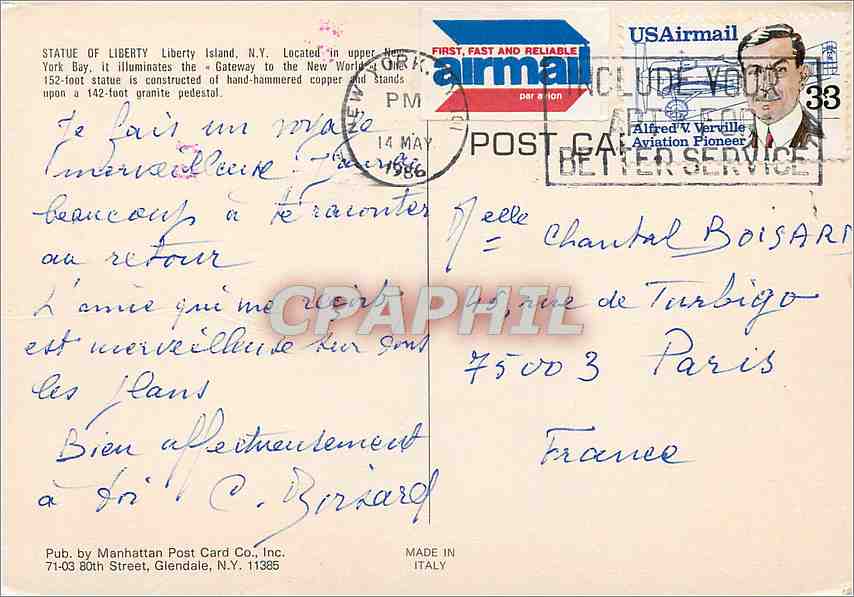 STATUE OF LIBERTY Liberty Island, N.Y. Located in upper New
York Bay, it illuminates the « Gateway to the New World
152-foot statue is constructed of hand-hammered copper and stands
upon a 142-foot granite pedestal.
FIRST, FAST AND RELIABLE
airmail
par avion
USAirmail
33
Alfred V. Verville
Aviation Pioneer
NEW YORK,
PM
14 MAY
1986
INCLUDE YOUR
APT. FOR
BETTER SERVICE
POST CA
Je fais un voyage
merveilleuse
beaucoup à te raconter
au retour
L'amie qui me reçoit
est merveilleuse sur tous
les plans
Bien affectueusement
à toi C. Boisard
Melle Chantal BOISARD
49, rue de Turbigo
75003 Paris
France
CPAPHIL
Pub. by Manhattan Post Card Co., Inc.
71-03 80th Street, Glendale, N.Y. 11385
MADE IN
ITALY